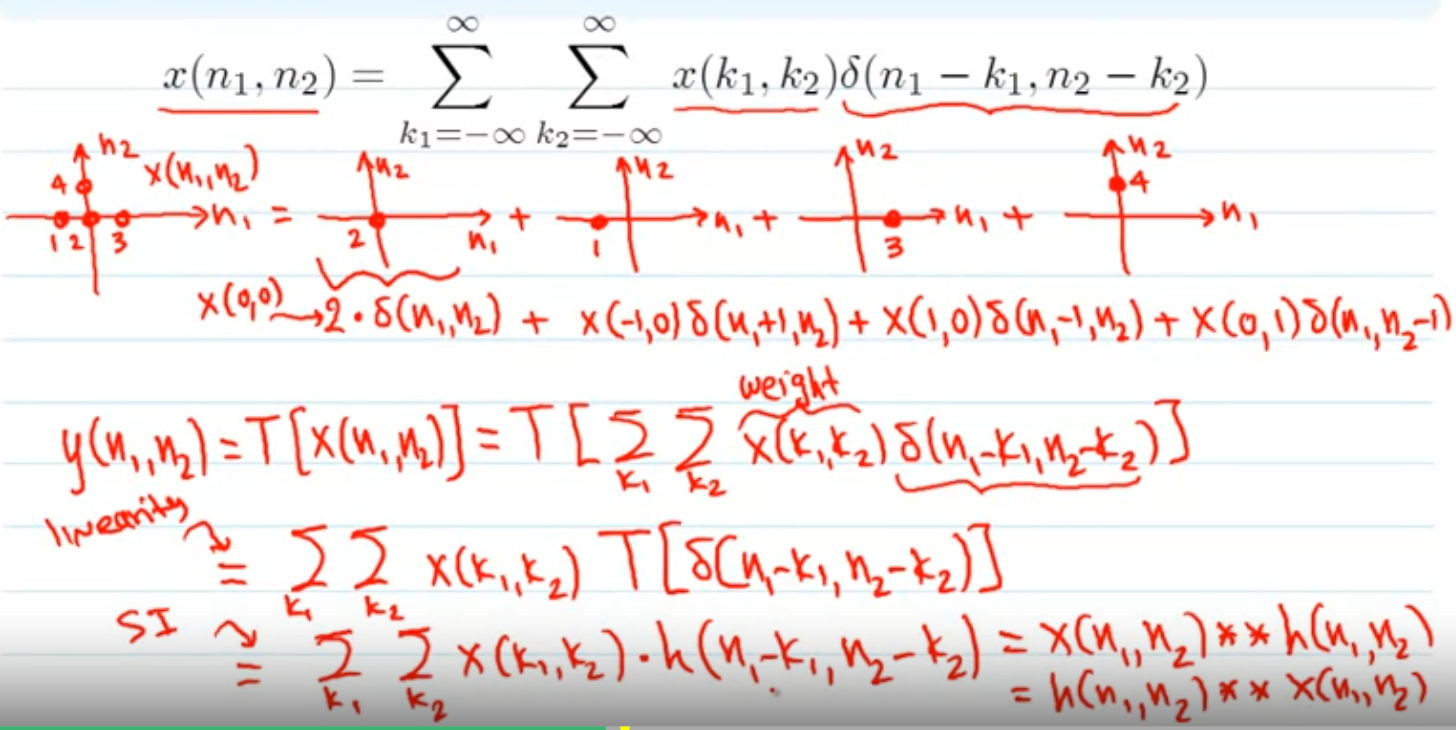 x(n₁, n₂) = ∑_{k₁=−∞}^{∞} ∑_{k₂=−∞}^{∞} x(k₁, k₂)δ(n₁ − k₁, n₂ − k₂)
n₂ x(n₁,n₂) n₂ n₂ n₂ n₂
4 4
n₁ = n₁ + n₁ + n₁ + n₁
1 2 3 2 1 3
x(0,0) → 2·δ(n₁,n₂) + x(-1,0)δ(n₁+1,n₂) + x(1,0)δ(n₁-1,n₂) + x(0,1)δ(n₁,n₂-1)
weight
y(n₁,n₂) = T[x(n₁,n₂)] = T[∑_{k₁} ∑_{k₂} x(k₁,k₂) δ(n₁-k₁,n₂-k₂)]
linearity
= ∑_{k₁} ∑_{k₂} x(k₁,k₂) T[δ(n₁-k₁,n₂-k₂)]
SI
= ∑_{k₁} ∑_{k₂} x(k₁,k₂)·h(n₁-k₁,n₂-k₂) = x(n₁,n₂)**h(n₁,n₂)
= h(n₁,n₂)**x(n₁,n₂)